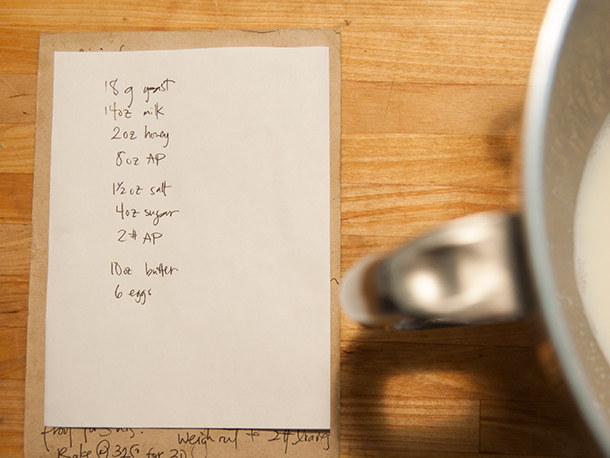 18 g yeast
14oz milk
2oz honey
8oz AP
1½oz salt
4oz sugar
2# AP
10oz butter
6 eggs
weigh out to 2#
Bake @ 325° for 30